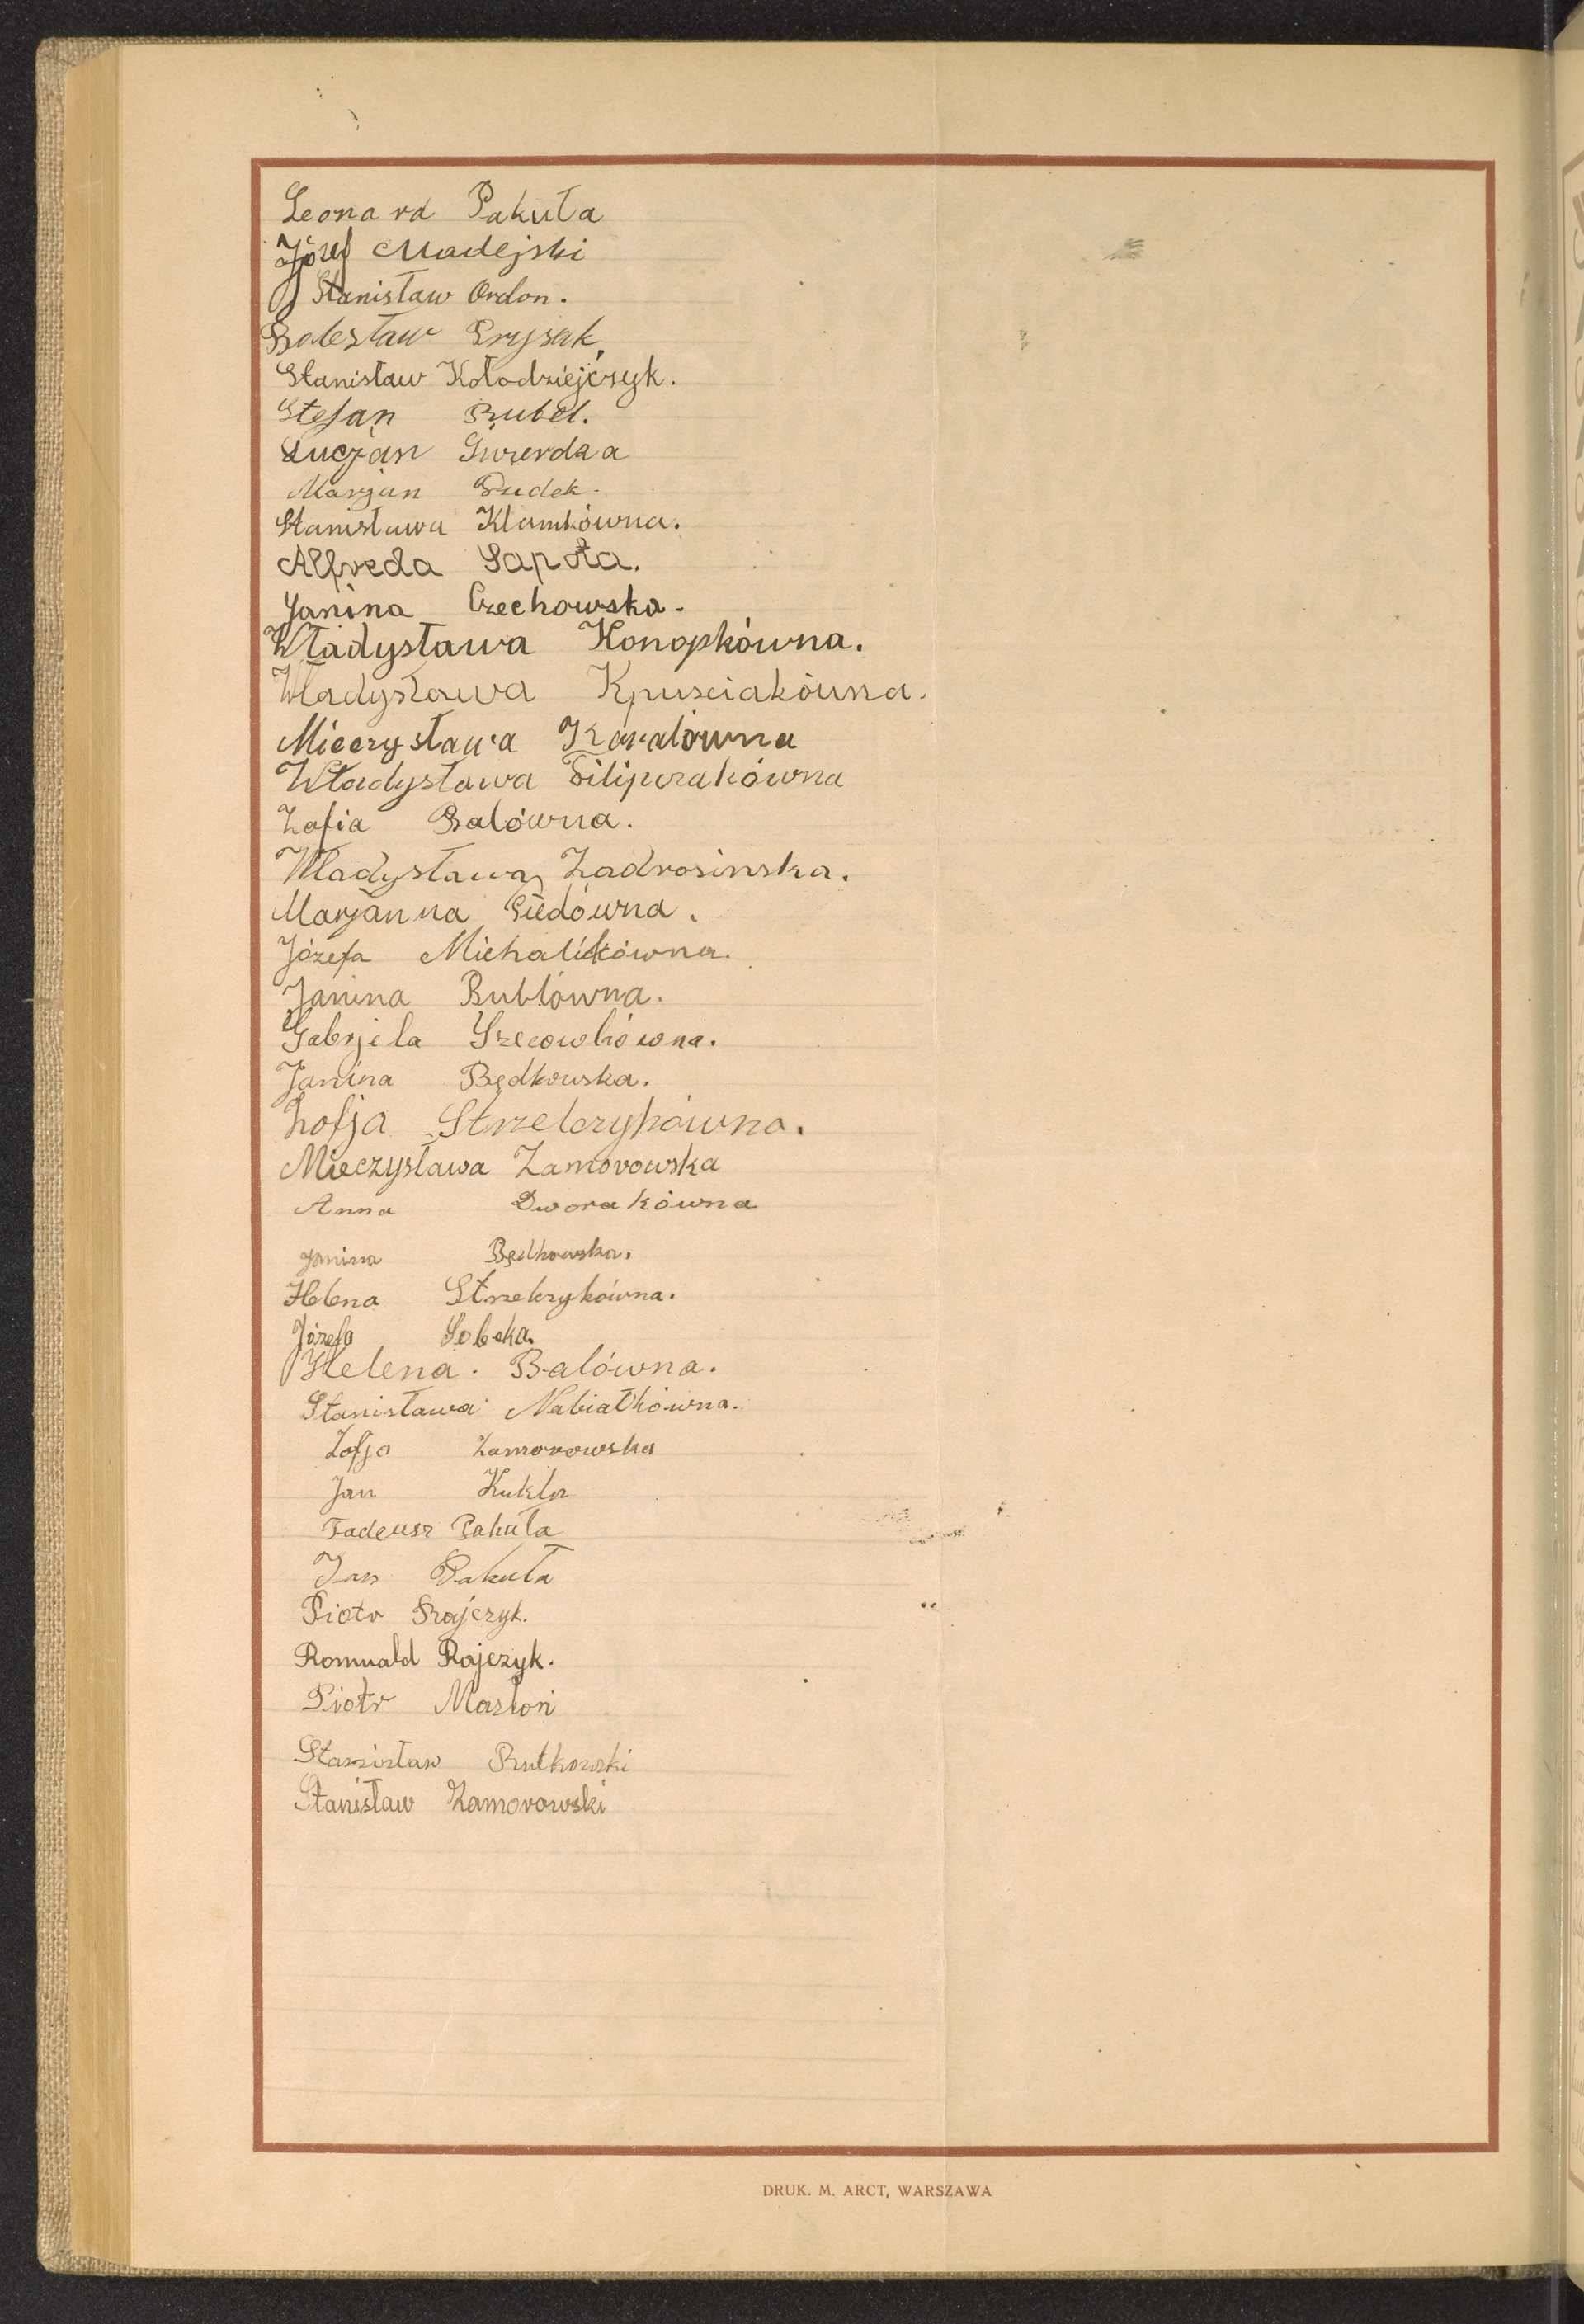 Leonard Pakuła
Józef Madejski
Stanisław Ordon.
Bolesław Prysak
Stanisław Kołodziejczyk.
Stefan Rubel.
Lucjan Gwerdza
Marjan Dudek.
Stanisława Klamkówna.
Alfreda Sapota.
Janina Czechowska.
Władysława Konopkówna.
Władysława Kpusciakówna.
Mieczysława Koralówna
Władysława Filipczakówna
Zofia Balówna.
Władysława Zadrosinska.
Marjanna Gudówna.
Józefa Michalikówna.
Janina Bublówna.
Gabrjela
Janina Będkowska.
Zofja Strzelczykówna.
Mieczysława Zamorowska
Anna Dworakówna
Janina Będkowska.
Helena Strzelczykówna.
Józefa Sobcka.
Helena. Balówna.
Stanisława Nabiałkówna.
Zofja Zamorowska
Jan Kukla
Tadeusz Pakuła
Jan Pakuła
Piotr Rajczyk.
Romuald Rajczyk.
Piotr Masłoń
Stanisław Rutkowski
Stanisław Zamorowski
DRUK. M. ARCT, WARSZAWA